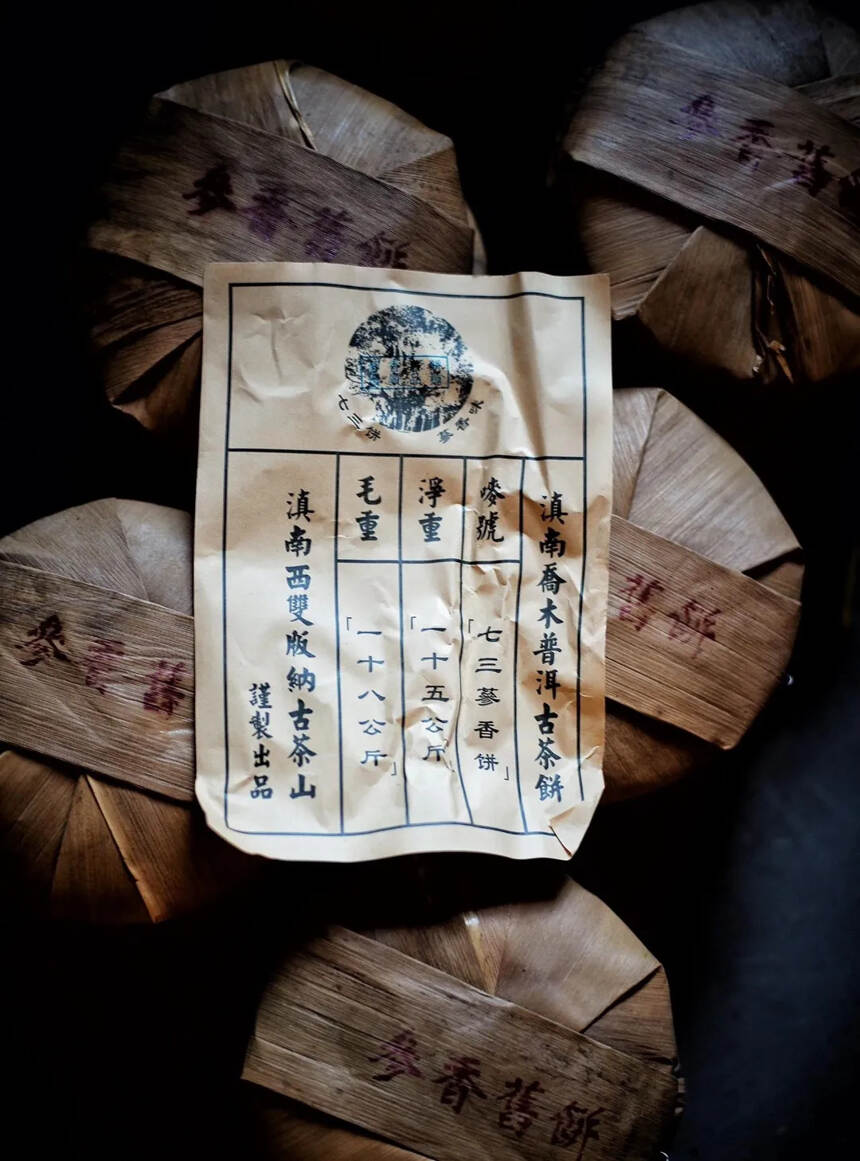 參香舊餅
參香舊
七三餅
蔘香味
滇南喬木普洱古茶餅
嘜號
「七三蔘香饼」
淨重
「一十五公斤」
毛重
「一十八公斤」
滇南西雙版納古茶山
謹製出品
舊餅
參香舊
參香舊餅